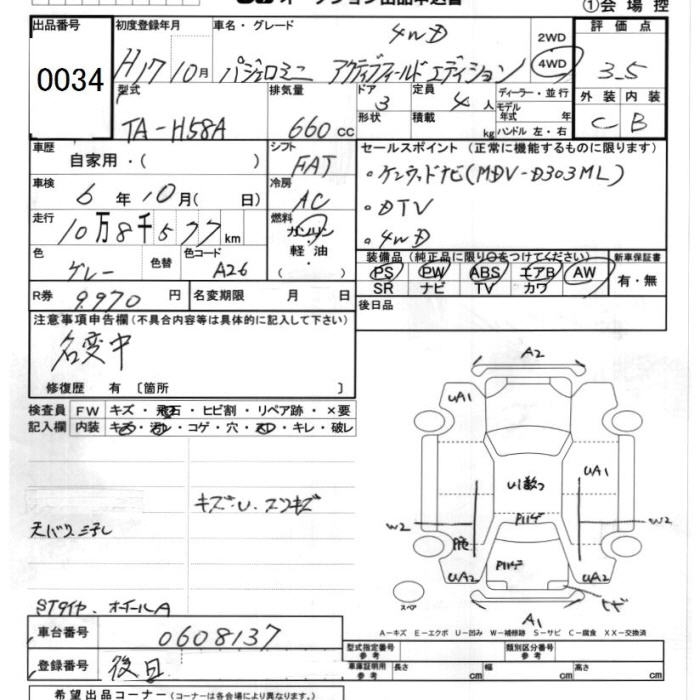 ①会場控
出品番号
0034
初度登録年月 H17 10月
車名・グレード 4WD
パジェロミニ アクティブフィールドエディション
2WD
4WD
評価点
3.5
型式
TA-H58A
排気量
660 cc
ドア 3
形状
定員 4人
積載 kg
ディーラー・並行
モデル年式 年
ハンドル 左・右
外装 内装
C B
車歴
自家用・( )
シフト
FAT
セールスポイント (正常に機能するものに限ります)
・ケンウッドナビ(MDV-D303ML)
・DTV
・4WD
車検 6年10月( 日)
冷房
AC
走行 10万8千577km
燃料
ガソリン
軽油
・( )
色 グレー
色替
色コード A26
装備品 (純正品に限り○をつけてください)
新車保証書
PS PW ABS エアB AW
有・無
SR ナビ TV カワ
R券 9,970円
名変期限 月 日
後日品
注意事項申告欄(不具合内容等は具体的に記入して下さい)
名変中
修復歴 有 〔箇所 〕
検査員記入欄
FW キズ・飛石・ヒビ割・リペア跡・×要
内装 キズ・汚レ・コゲ・穴・スレ・キレ・破レ
キズ・U・スリキズ
STタイヤ・ホイールA
A2
UA1
UA1
U1数つ
P11ゲ
W2
W2
P11ゲ
UA2
UA2
A1
スペア
A−キズ E−エクボ U−凹み W−補修跡 S−サビ C−腐食 XX−交換済
車台番号 0608137
登録番号 後日
型式指定番号 参考
類別区分番号 参考
車庫証明用 参考
長さ cm
幅 cm
高さ cm
希望出品コーナー (コーナーは各会場により異なります。)